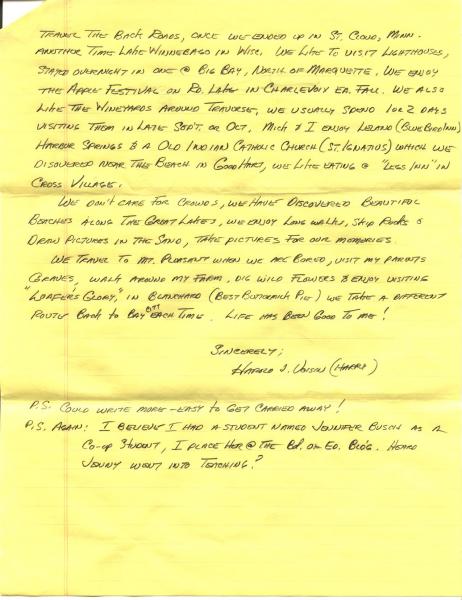 TRAVEL THE BACK ROADS, ONCE WE ENDED UP IN ST. CLOUD, MINN.
ANOTHER TIME LAKE WINNEBAGO IN WISC. WE LIKE TO VISIT LIGHTHOUSES,
STAYED OVERNIGHT IN ONE @ BIG BAY, NORTH OF MARQUETTE. WE ENJOY
THE APPLE FESTIVAL ON RD. LAKE IN CHARLEVOIX EA. FALL. WE ALSO
LIKE THE WINEYARDS AROUND TRAVERSE, WE USUALLY SPEND 1 OR 2 DAYS
VISITING THEM IN LATE SEPT. OR OCT. MICH & I ENJOY LELAND (BLUE BIRD INN)
HARBOR SPRINGS & A OLD INDIAN CATHOLIC CHURCH (ST. IGNATIUS) WHICH WE
DISCOVERED NEAR THE BEACH IN GOOD HART, WE LIKE EATING @ "LEGS INN" IN
CROSS VILLAGE.
WE DON'T CARE FOR CROWDS, WE HAVE DISCOVERED BEAUTIFUL
BEACHES ALONG THE GREAT LAKES, WE ENJOY LONG WALKS, SKIP ROCKS &
DRAW PICTURES IN THE SAND, TAKE PICTURES FOR OUR MEMORIES.
WE TRAVEL TO MT. PLEASANT WHEN WE ARE BORED, VISIT MY PARENTS
GRAVES, WALK AROUND MY FARM, DIG WILD FLOWERS & ENJOY VISITING
"LOAFERS GLORY," IN BLANCHARD (BEST BUTTERMILK PIE) WE TAKE A DIFFERENT
ROUTE BACK TO BAY CITY EACH TIME. LIFE HAS BEEN GOOD TO ME!
SINCERELY;
HAROLD J. (HARRY)
P.S. COULD WRITE MORE - EASY TO GET CARRIED AWAY!
P.S. AGAIN: I BELIEVE I HAD A STUDENT NAMED JENNIFER BUSCH AS A
CO-OP STUDENT, I PLACE HER @ THE BD. OF ED. BLDG. HEARD
JENNY WENT INTO TEACHING?